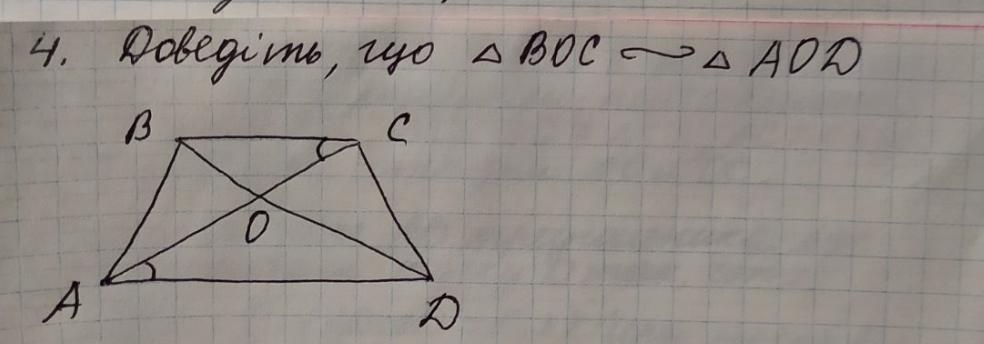 4. Доведіть, що △ BOC ∼ △ AOD
B C
O
A D